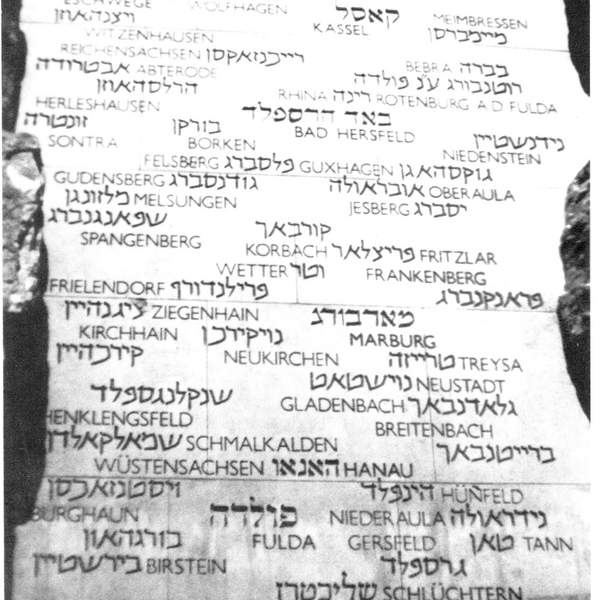 ESCHWEGE WOLFHAGEN קאסל MEIMBRESSEN
ויצנהאוזן KASSEL מיימברסן
WITZENHAUSEN
REICHENSACHSEN רייכנזאקסן BEBRA בברה
אבטרודה ABTERODE רוטנבורג ע'נ פולדה
הרלסהאוזן RHINA רינה ROTENBURG A.D. FULDA
HERLESHAUSEN באד הרספלד
זונטרה בורקן BAD HERSFELD נידנשטיין
SONTRA BORKEN NIEDENSTEIN
FELSBERG פלסברג GUXHAGEN גוקסהאגן
GUDENSBERG גודנסברג אובראולה OBERAULA
מלזונגן MELSUNGEN JESBERG יסברג
שפאנגנברג קורבאך
SPANGENBERG KORBACH פריצלאר FRITZLAR
WETTER וטר FRANKENBERG
FRIELENDORF פרילנדורף פראנקנברג
ציגנהיין ZIEGENHAIN מארבורג
KIRCHHAIN נויקירכן MARBURG
קירכהיין NEUKIRCHEN טרייזה TREYSA
שנקלנגספלד נוישטאט NEUSTADT
HENKLENGSFELD GLADENBACH גלאדנבאך
שמאלקאלדן SCHMALKALDEN BREITENBACH
WÜSTENSACHSEN האנאו HANAU ברייטנבאך
ויסטנזאכסן הינפלד HÜNFELD
BURGHAUN פולדה NIEDERAULA נידראולה
בורגהאון FULDA GERSFELD טאן TANN
בירשטיין BIRSTEIN גרספלד
שליכטרן SCHLÜCHTERN